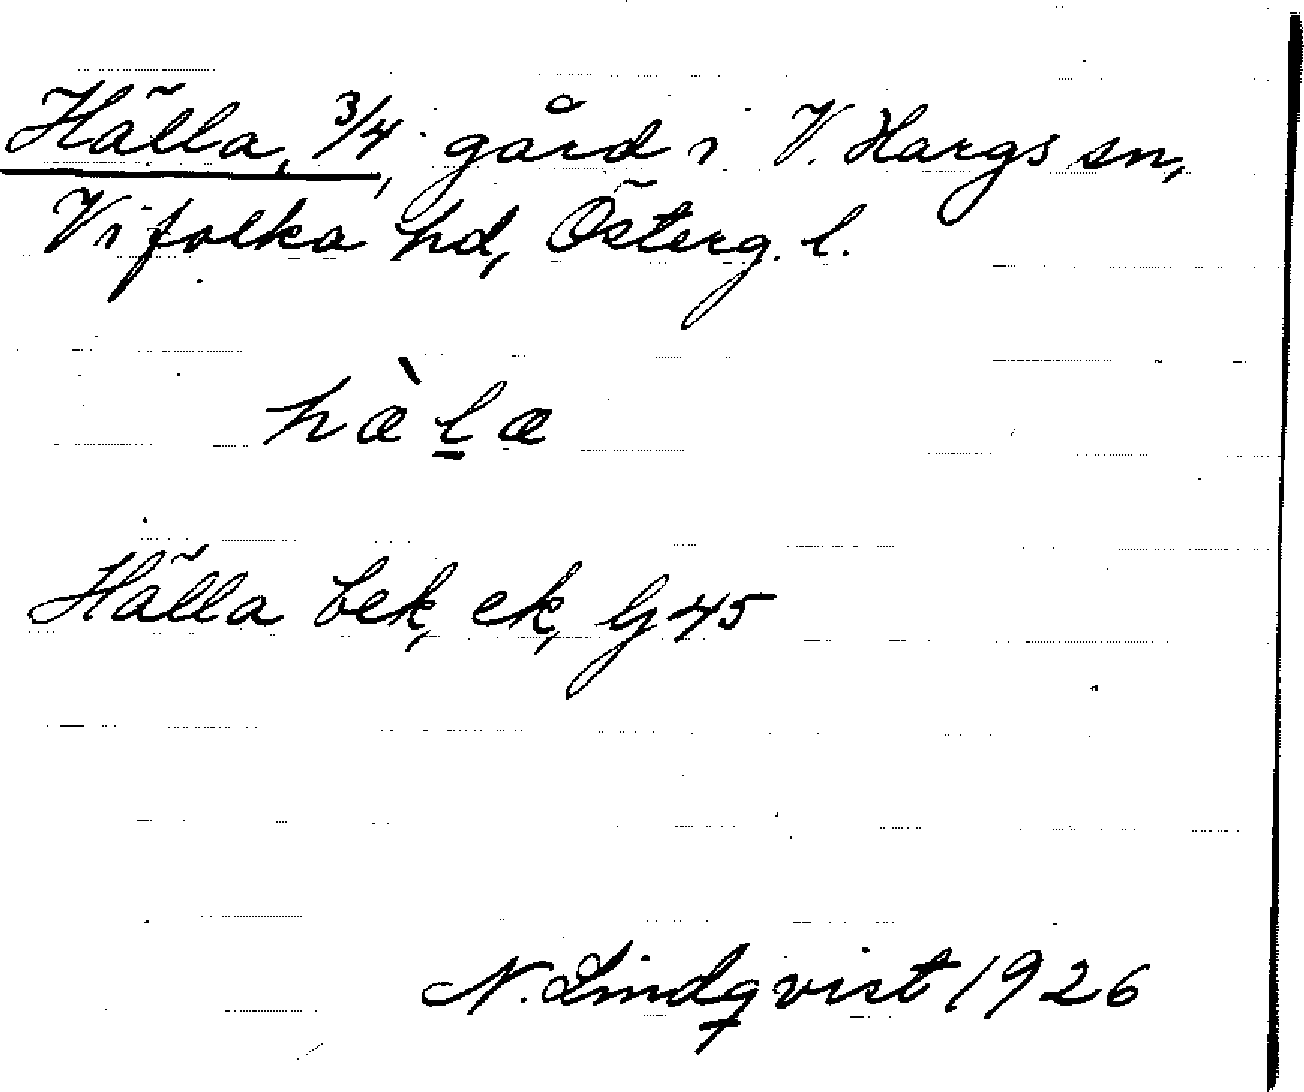 Hälla, 3/4, gård i V. Hargs sn,
Vifolka hd, Österg. l.
hæ̀l̲a
Hälla bek, ek, G 45
N. Lindqvist 1926